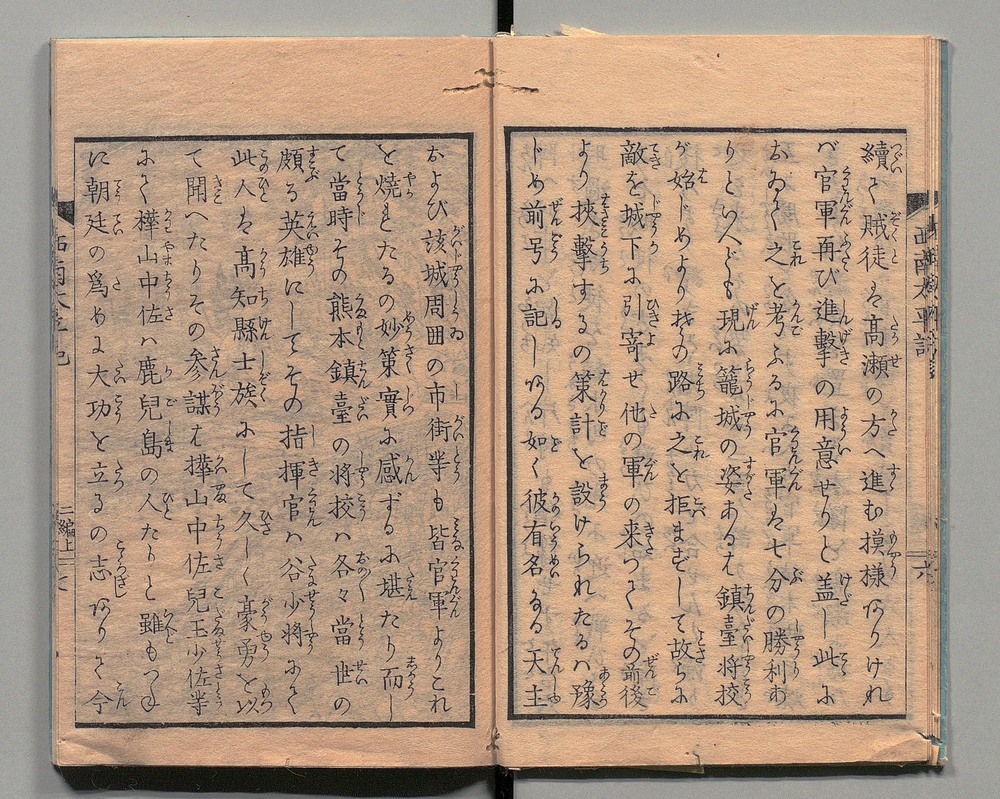 續て賊徒は高瀬の方へ進む摸様ありけれ
バ官軍再び進撃の用意せりと盖し此に
おゐて之を考ふるに官軍は七分の勝利あ
りといへども現に籠城の姿あるは鎮臺将挍
が始じめより其の路に之を拒ませずして故らに
敵を城下に引寄せ他の軍の来つてその前後
より挾擊するの策計を設けられたるハ豫
じめ前号に記しある如く彼有名なる天主
および該城周囲の市街等も皆官軍よりこれ
を焼きたるの妙策實に感ずるに堪たり而し
て當時その熊本鎮臺の将挍ハ各々當世の
頗る英雄にしてその指揮官ハ谷少将にて
此人は髙知縣士族にして久しく豪勇を以
て聞へたりその参謀は樺山中佐兒玉少佐等
にて樺山中佐ハ鹿兒島の人たりと雖もつね
に朝廷の爲めに大功を立るの志ありて今
西南太平記
二編上
六
七